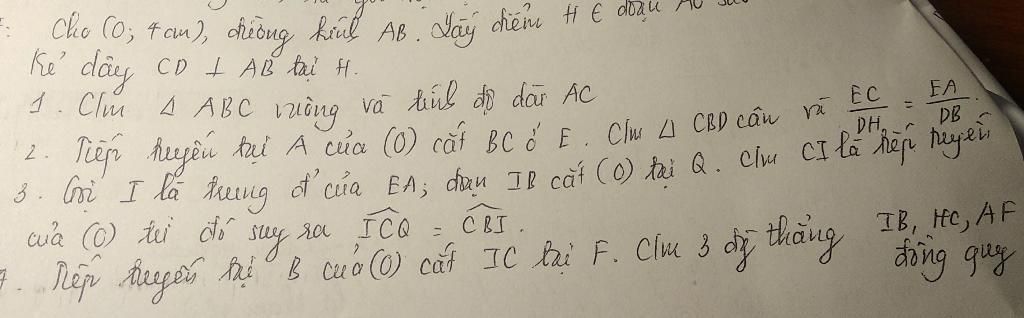 Cho (O; 4cm), đường kính AB. Lấy điểm H ∈ đoạn AO sao
Kẻ dây CD ⊥ AB tại H.
1. C/m Δ ABC vuông và tính độ dài AC
2. Tiếp tuyến tại A của (O) cắt BC ở E. C/m Δ CBD cân và EC/DH = EA/DB.
3. Gọi I là trung đ' của EA; đoạn IB cắt (O) tại Q. C/m CI là tiếp tuyến
của (O) từ đó suy ra ICQ = CBI.
Tiếp tuyến tại B của (O) cắt IC tại F. C/m 3 đg thẳng IB, HC, AF
đồng quy